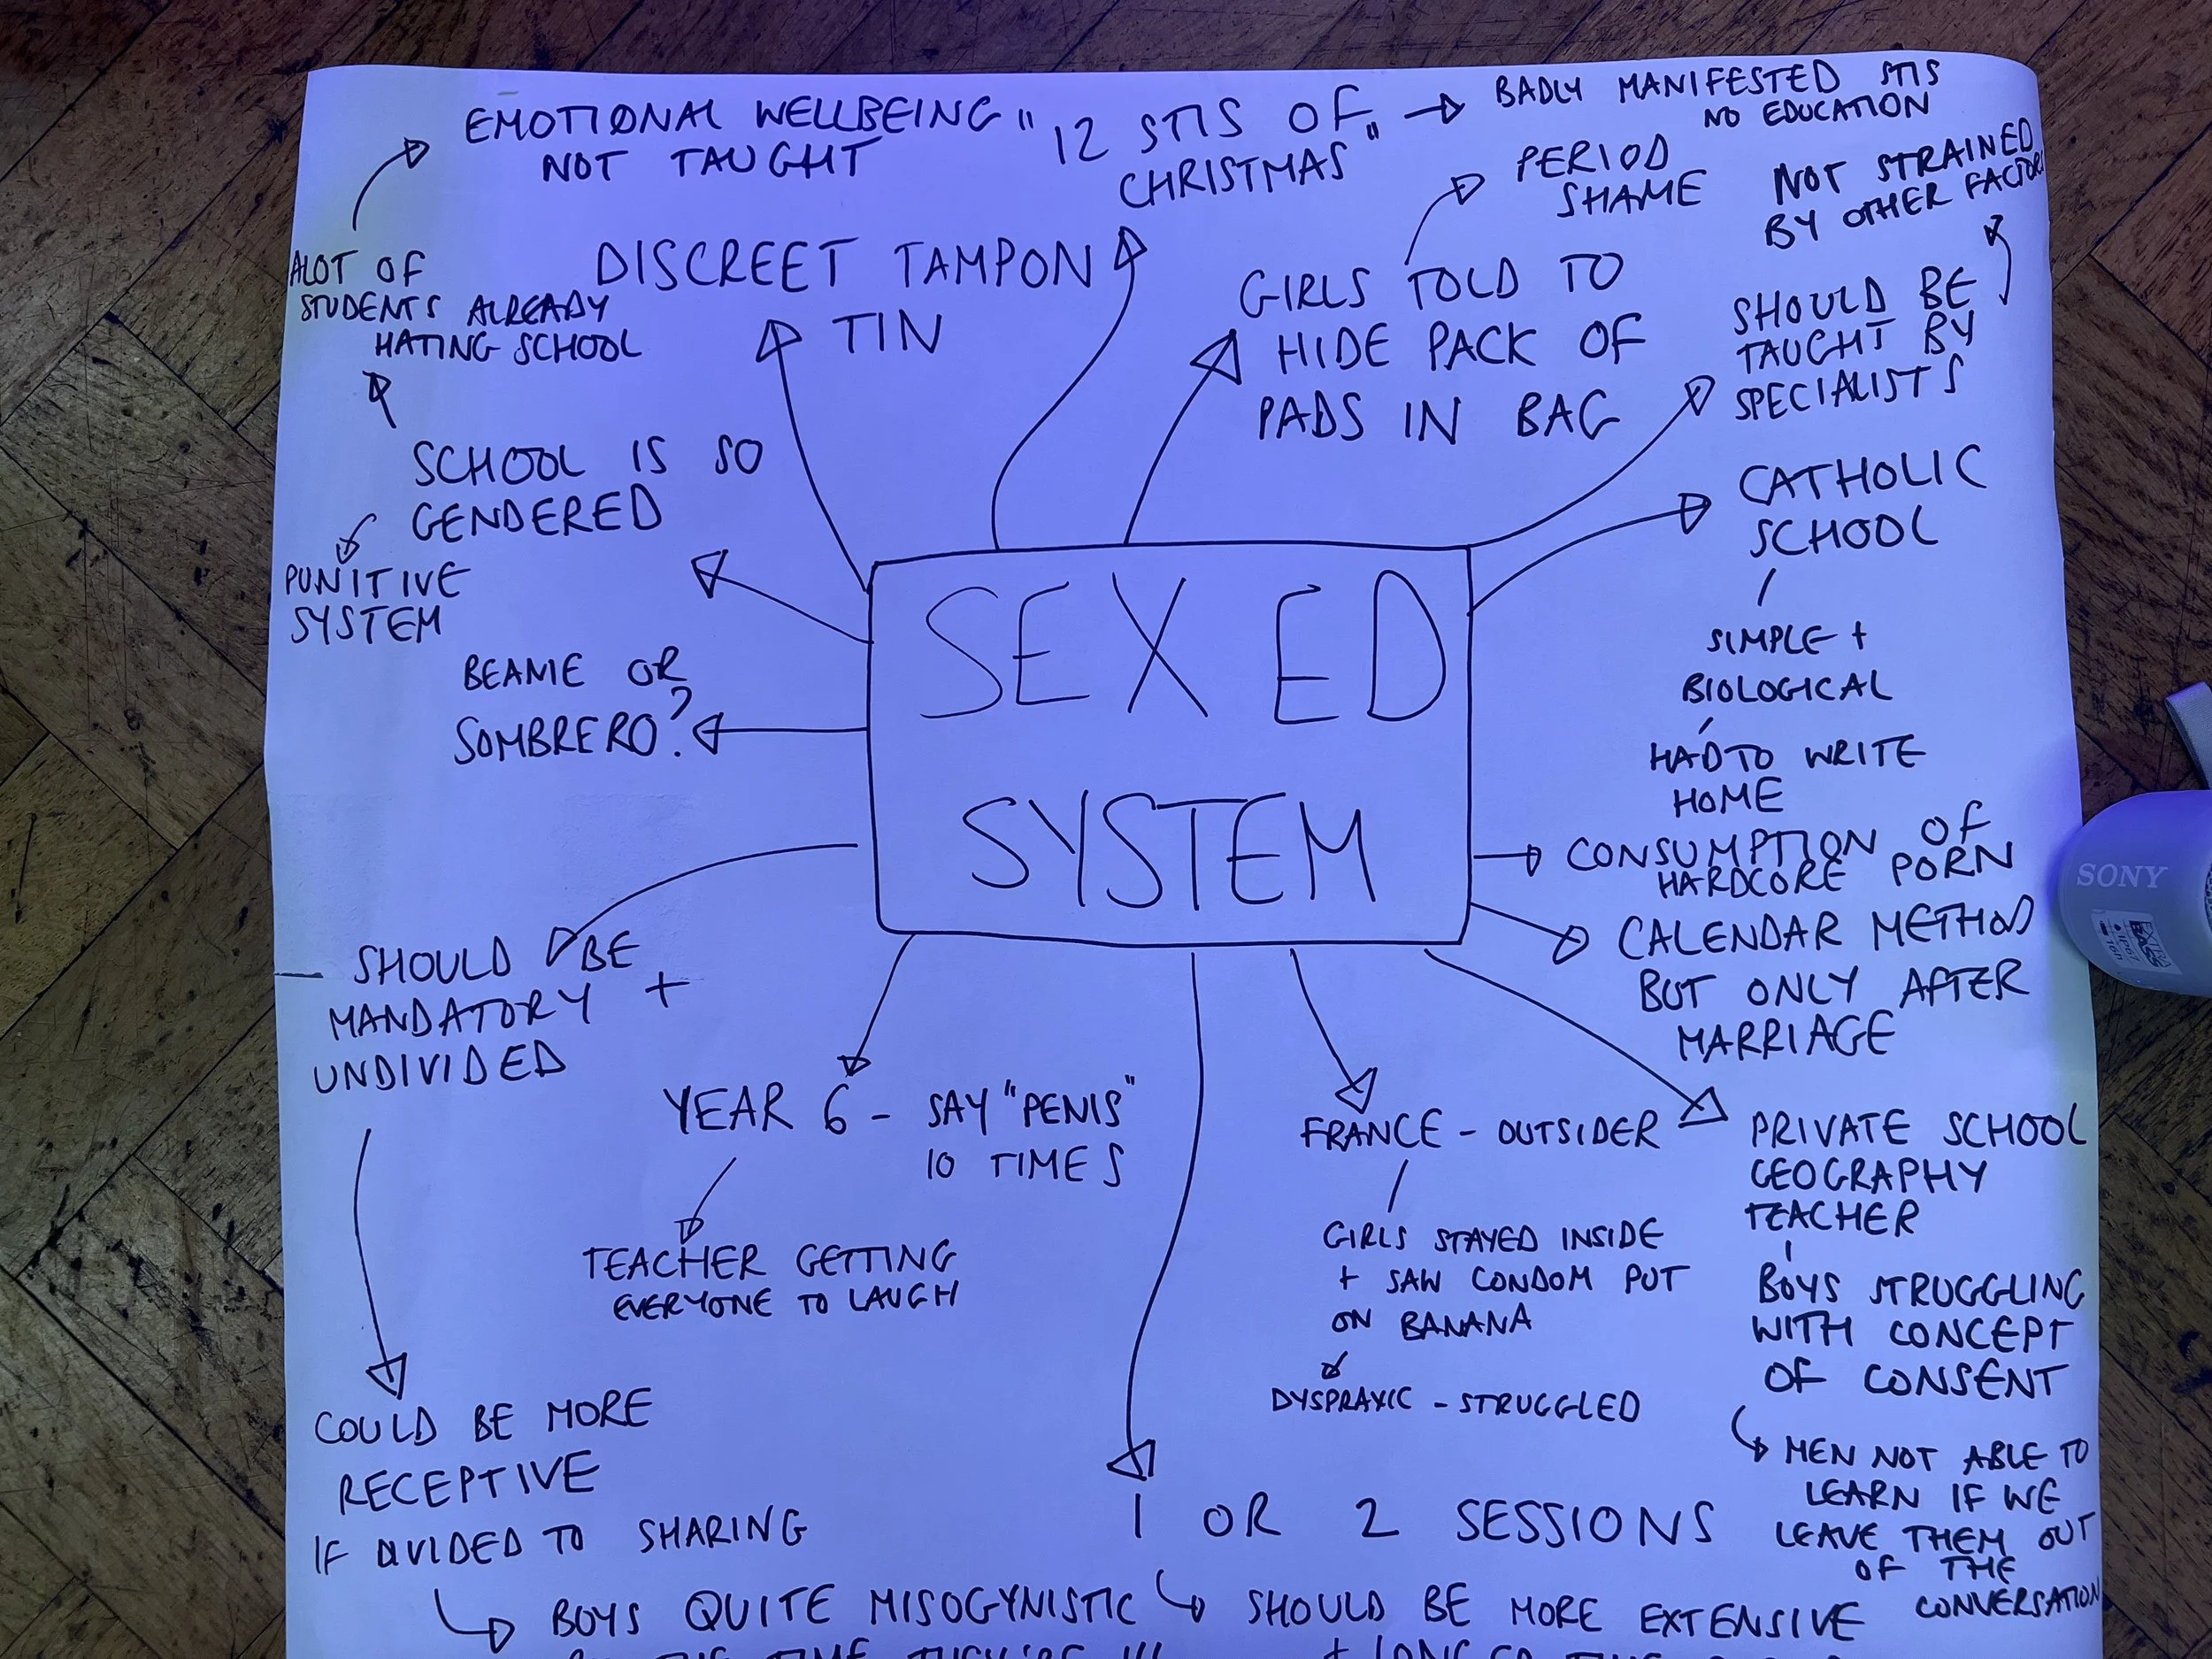 EMOTIONAL WELLBEING
NOT TAUGHT
"12 STIS OF
CHRISTMAS"
BADLY MANIFESTED STIS
NO EDUCATION
PERIOD
SHAME
NOT STRAINED
BY OTHER FACTORS
ALOT OF
STUDENTS ALREADY
HATING SCHOOL
DISCREET TAMPON
TIN
GIRLS TOLD TO
HIDE PACK OF
PADS IN BAG
SHOULD BE
TAUGHT BY
SPECIALISTS
SCHOOL IS SO
GENDERED
PUNITIVE
SYSTEM
CATHOLIC
SCHOOL
SIMPLE +
BIOLOGICAL
HAD TO WRITE
HOME
BEANIE OR
SOMBRERO?
SEX ED
SYSTEM
CONSUMPTION OF
HARDCORE PORN
CALENDAR METHOD
BUT ONLY AFTER
MARRIAGE
SONY
SHOULD BE
MANDATORY +
UNDIVIDED
YEAR 6 - SAY "PENIS"
10 TIMES
TEACHER GETTING
EVERYONE TO LAUGH
FRANCE - OUTSIDER
GIRLS STAYED INSIDE
+ SAW CONDOM PUT
ON BANANA
DYSPRAXIC - STRUGGLED
PRIVATE SCHOOL
GEOGRAPHY
TEACHER
BOYS STRUGGLING
WITH CONCEPT
OF CONSENT
MEN NOT ABLE TO
LEARN IF WE
LEAVE THEM OUT
OF THE
CONVERSATION
COULD BE MORE
RECEPTIVE
IF DIVIDED TO SHARING
BOYS QUITE MISOGYNISTIC
1 OR 2 SESSIONS
SHOULD BE MORE EXTENSIVE